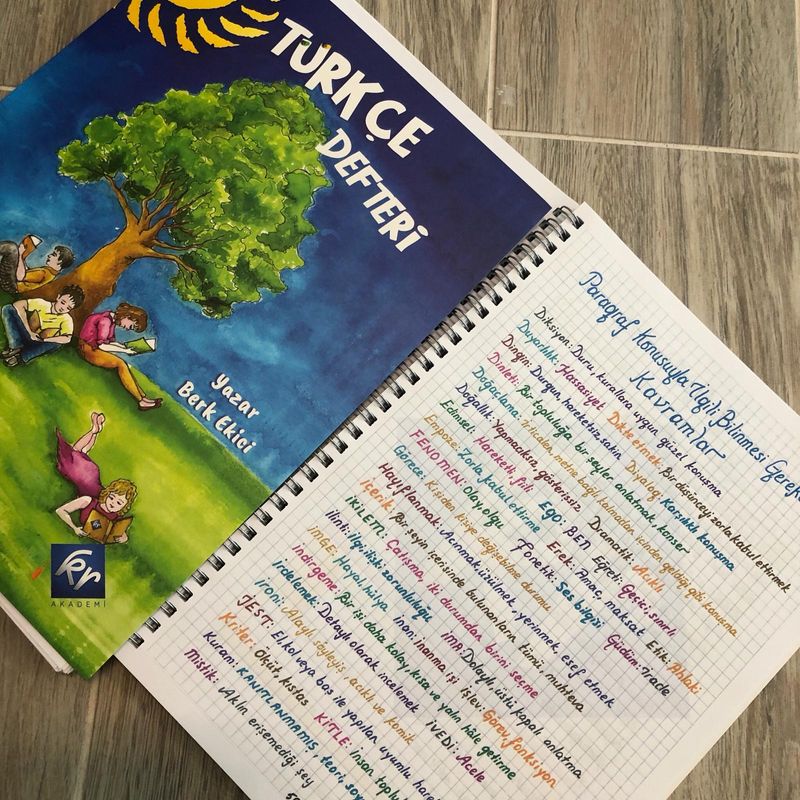 TÜRKÇE
DEFTERİ
Yazar
Berk Ekici
kr
AKADEMİ
Paragraf Konusuyla İlgili Bilinmesi Gereken
Kavramlar
Diksiyon: Duru, kurallara uygun, güzel konuşma
Duyarlılık: Hassasiyet Dikte etmek: Bir düşünceyi zorla kabul ettirmek
Dingin: Durgun, hareketsiz, sakin Diyalog: Karşılıklı konuşma
Dinleti: Bir topluluğa bir şeyler anlatmak, konser
Doğaçlama: İrticalen, metne bağlı kalmadan, içinden geldiği gibi konuşma
Doğallık: Yapmacıksız, gösterişsiz Dramatik: Acıklı
Edimsel: Hareketli, fiili Ego: BEN Eğreti: Geçici, sınırlı
Empoze: Zorla kabul ettirme Erek: Amaç, maksat Etik: Ahlaki
FENOMEN: Olay, olgu Fonetik: Ses bilgisi Güdüm: İrade
Görece: Kişiden kişiye değişebilme durumu
Hayıflanmak: Acınmak, üzülmek, yerinmek, esef etmek
İçerik: Bir şeyin içerisinde bulunanların tümü, muhteva
İKİLEM: Çatışma, iki durumdan birini seçme
İlinti: İlgi, ilişki, zorunluluğu İMA: Dolaylı, üstü kapalı anlatma
İMGE: Hayal, hülya İnan: İnanma işi İşlev: Görev, fonksiyon
İndirgeme: Bir işi daha kolay, kısa ve yalın hâle getirme
İrdelemek: Detaylı olarak incelemek İVEDİ: Acele
İroni: Alaylı söyleyiş, acıklı ve komik
JEST: El, kol veya baş ile yapılan uyumlu
Kriter: Ölçüt, kıstas KİTLE: İnsan
Kuram: KANITLANMAMIŞ, teori,
Mistik: Aklın erişemediği şey